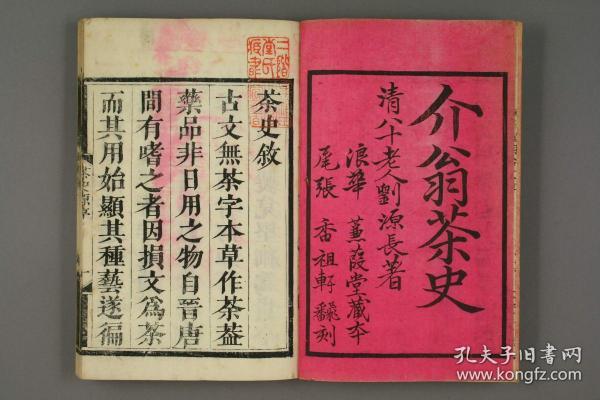 介翁茶史
清八十老人劉源長著
浪華 蒹葭堂藏本
尾張 香祖軒飜刻
茶史敘
古文無茶字本草作荼蓋
藥品非日用之物自晉唐
間有嗜之者因損文為茶
而其用始顯其種藝遂徧
孔夫子旧书网
www.kongfz.com